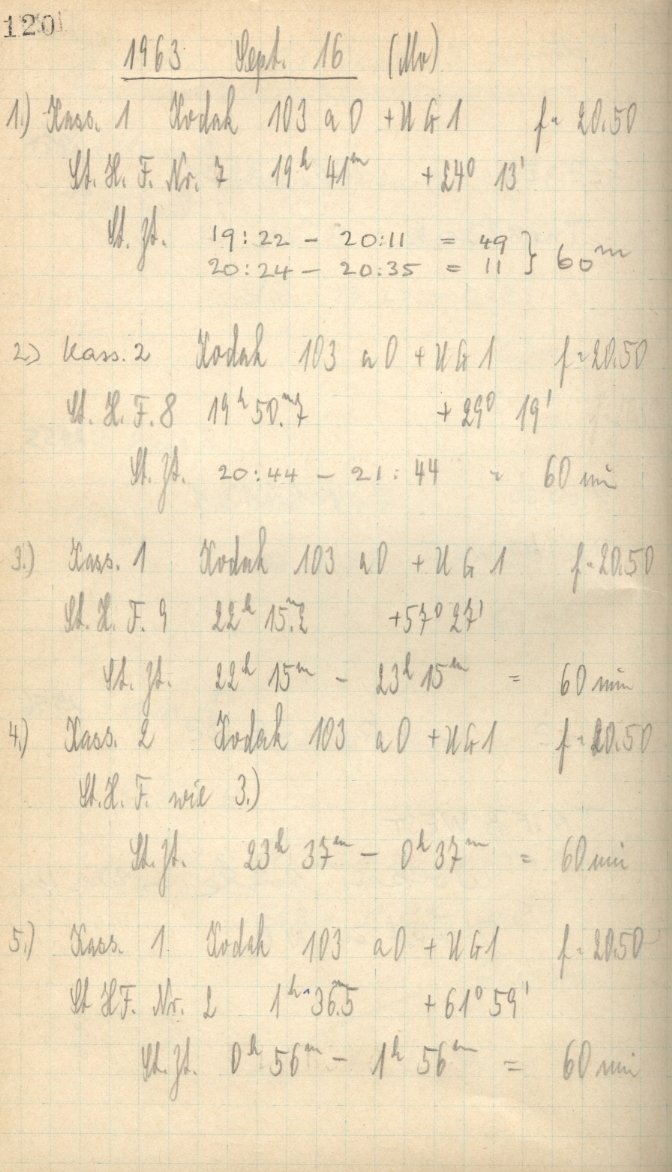 120
1963 Sept. 16 (Mo)
1.) Kass. 1 Kodak 103 a O + UG 1 f = 20.50
St. H. F. Nr. 7 19h 41m + 24° 13'
St. Zt. 19:22 – 20:11 = 49 } 60m
20:24 – 20:35 = 11
2.) Kass. 2 Kodak 103 a O + UG 1 f = 20.50
St. H. F. 8 19h 50.m7 + 29° 19'
St. Zt. 20:44 – 21:44 = 60 min
3.) Kass. 1 Kodak 103 a O + UG 1 f = 20.50
St. H. F. 9 22h 15.m2 +57° 27'
St. Zt. 22h 15m – 23h 15m = 60 min
4.) Kass. 2 Kodak 103 a O + UG 1 f = 20.50
St. H. F. wie 3.)
St. Zt. 23h 37m – 0h 37m = 60 min
5.) Kass. 1 Kodak 103 a O + UG 1 f = 20.50
St. H. F. Nr. 2 1h 36.m5 + 61° 59'
St. Zt. 0h 56m – 1h 56m = 60 min